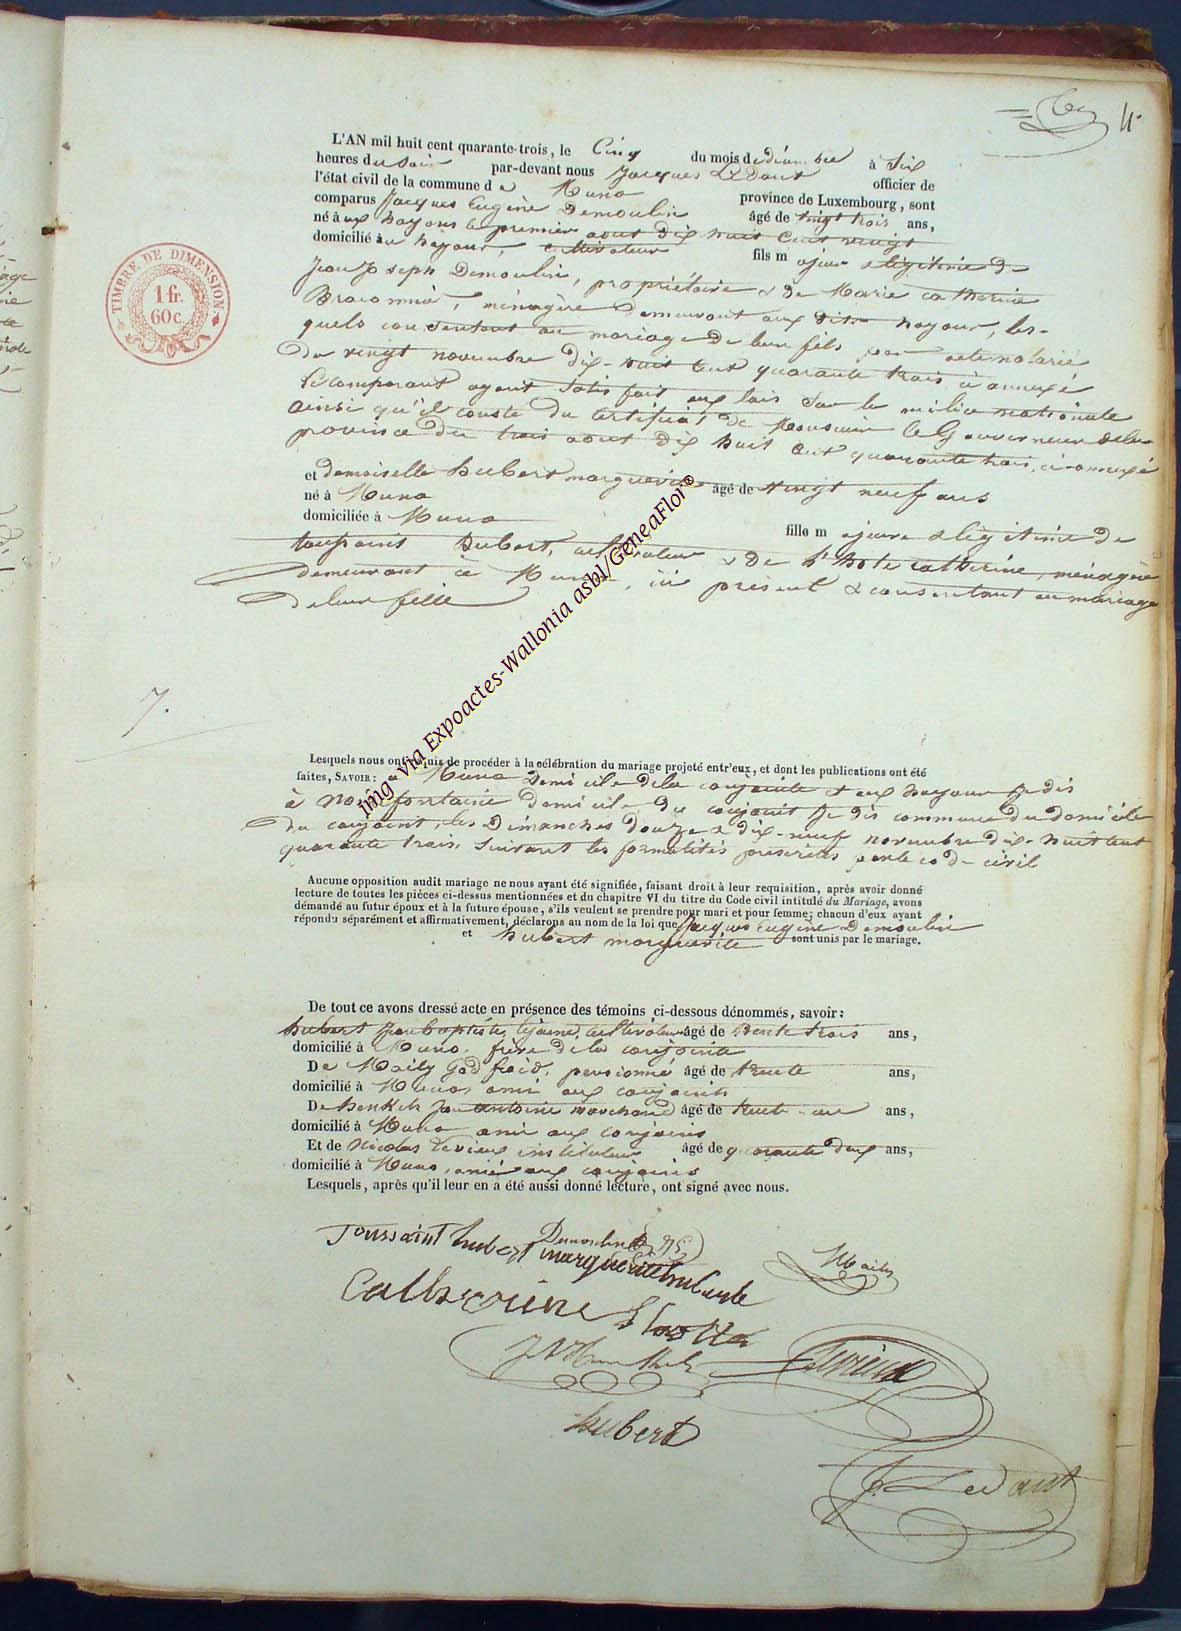 4
L'AN mil huit cent quarante-trois, le Cinq du mois de décembre à Six
heures du Soir par-devant nous Jacques Ledant officier de
l'état civil de la commune d e Muno province de Luxembourg, sont
comparus Jacques Eugène Demoulin âgé de vingt trois ans,
né à aux hayons le premier aout dix huit cent vingt
domicilié à hayons, cultivateur fils m ajeur & légitime de
Jean Joseph Demoulin, propriétaire & de Marie catherine
Braconnier, ménagère demeurant aux dits hayons, les-
quels consentent au mariage de leur fils par acte notarié
du vingt novembre dix-huit cent quarante trois ci annexé
le comparant ayant satisfait aux lois sur la milice nationale
ainsi qu'il conste du certificat de Monsieur le Gouverneur de la
province du trois aout dix huit cent quarante trois, ci-annexé
et demoiselle hubert marguerite âgé de vingt neuf ans
né à Muno
domiciliée à Muno
fille m ajeure & légitime de
toussaint hubert, cultivateur & de l'hote catherine, ménagère
demeurant à Muno, ici présent & consentant au mariage
de leur fille
7.
Lesquels nous ont requis de procéder à la célébration du mariage projeté entr'eux, et dont les publications ont été
faites, SAVOIR: a Muno domicile de la conjointe & aux hayons je dis
à Noirefontaine domicile du conjoint je dis commune du domicile
du conjoint, les Dimanches douze & dix-neuf novembre dix-huit cent
quarante trois, suivant les formalités prescrites par le code civil
Aucune opposition audit mariage ne nous ayant été signifiée, faisant droit à leur requisition, après avoir donné
lecture de toutes les pièces ci-dessus mentionnées et du chapitre VI du titre du Code civil intitulé du Mariage, avons
démandé au futur époux et à la future épouse, s'ils veulent se prendre pour mari et pour femme; chacun d'eux ayant
répondu séparément et affirmativement, déclarons au nom de la loi que Jacques Eugène Demoulin
et hubert marguerite sont unis par le mariage.
De tout ce avons dressé acte en présence des témoins ci-dessous dénommés, savoir:
hubert Jean baptiste, lejeune, cultivateur âgé de trente trois ans,
domicilié à Muno, frère de la conjointe
De Maily Godfroid, pensionné âgé de trente ans,
domicilié à Muno, ami aux conjoints
De henkels Jean antoine marchand âgé de trente-un ans,
domicilié à Muno ami aux conjoints
Et de Nicolas Levieux instituteur âgé de quarante deux ans,
domicilié à Muno, ami aux conjoints
Lesquels, après qu'il leur en a été aussi donné lecture, ont signé avec nous.
Toussaint hubert Demoulin
marguerite hubert
Maily
Catherine Lhotte
Levieux
hubert
J. Ledant
TIMBRE DE DIMENSION
1 fr.
60 c.
img via Expoactes-Wallonia asbl/GeneaFlor®